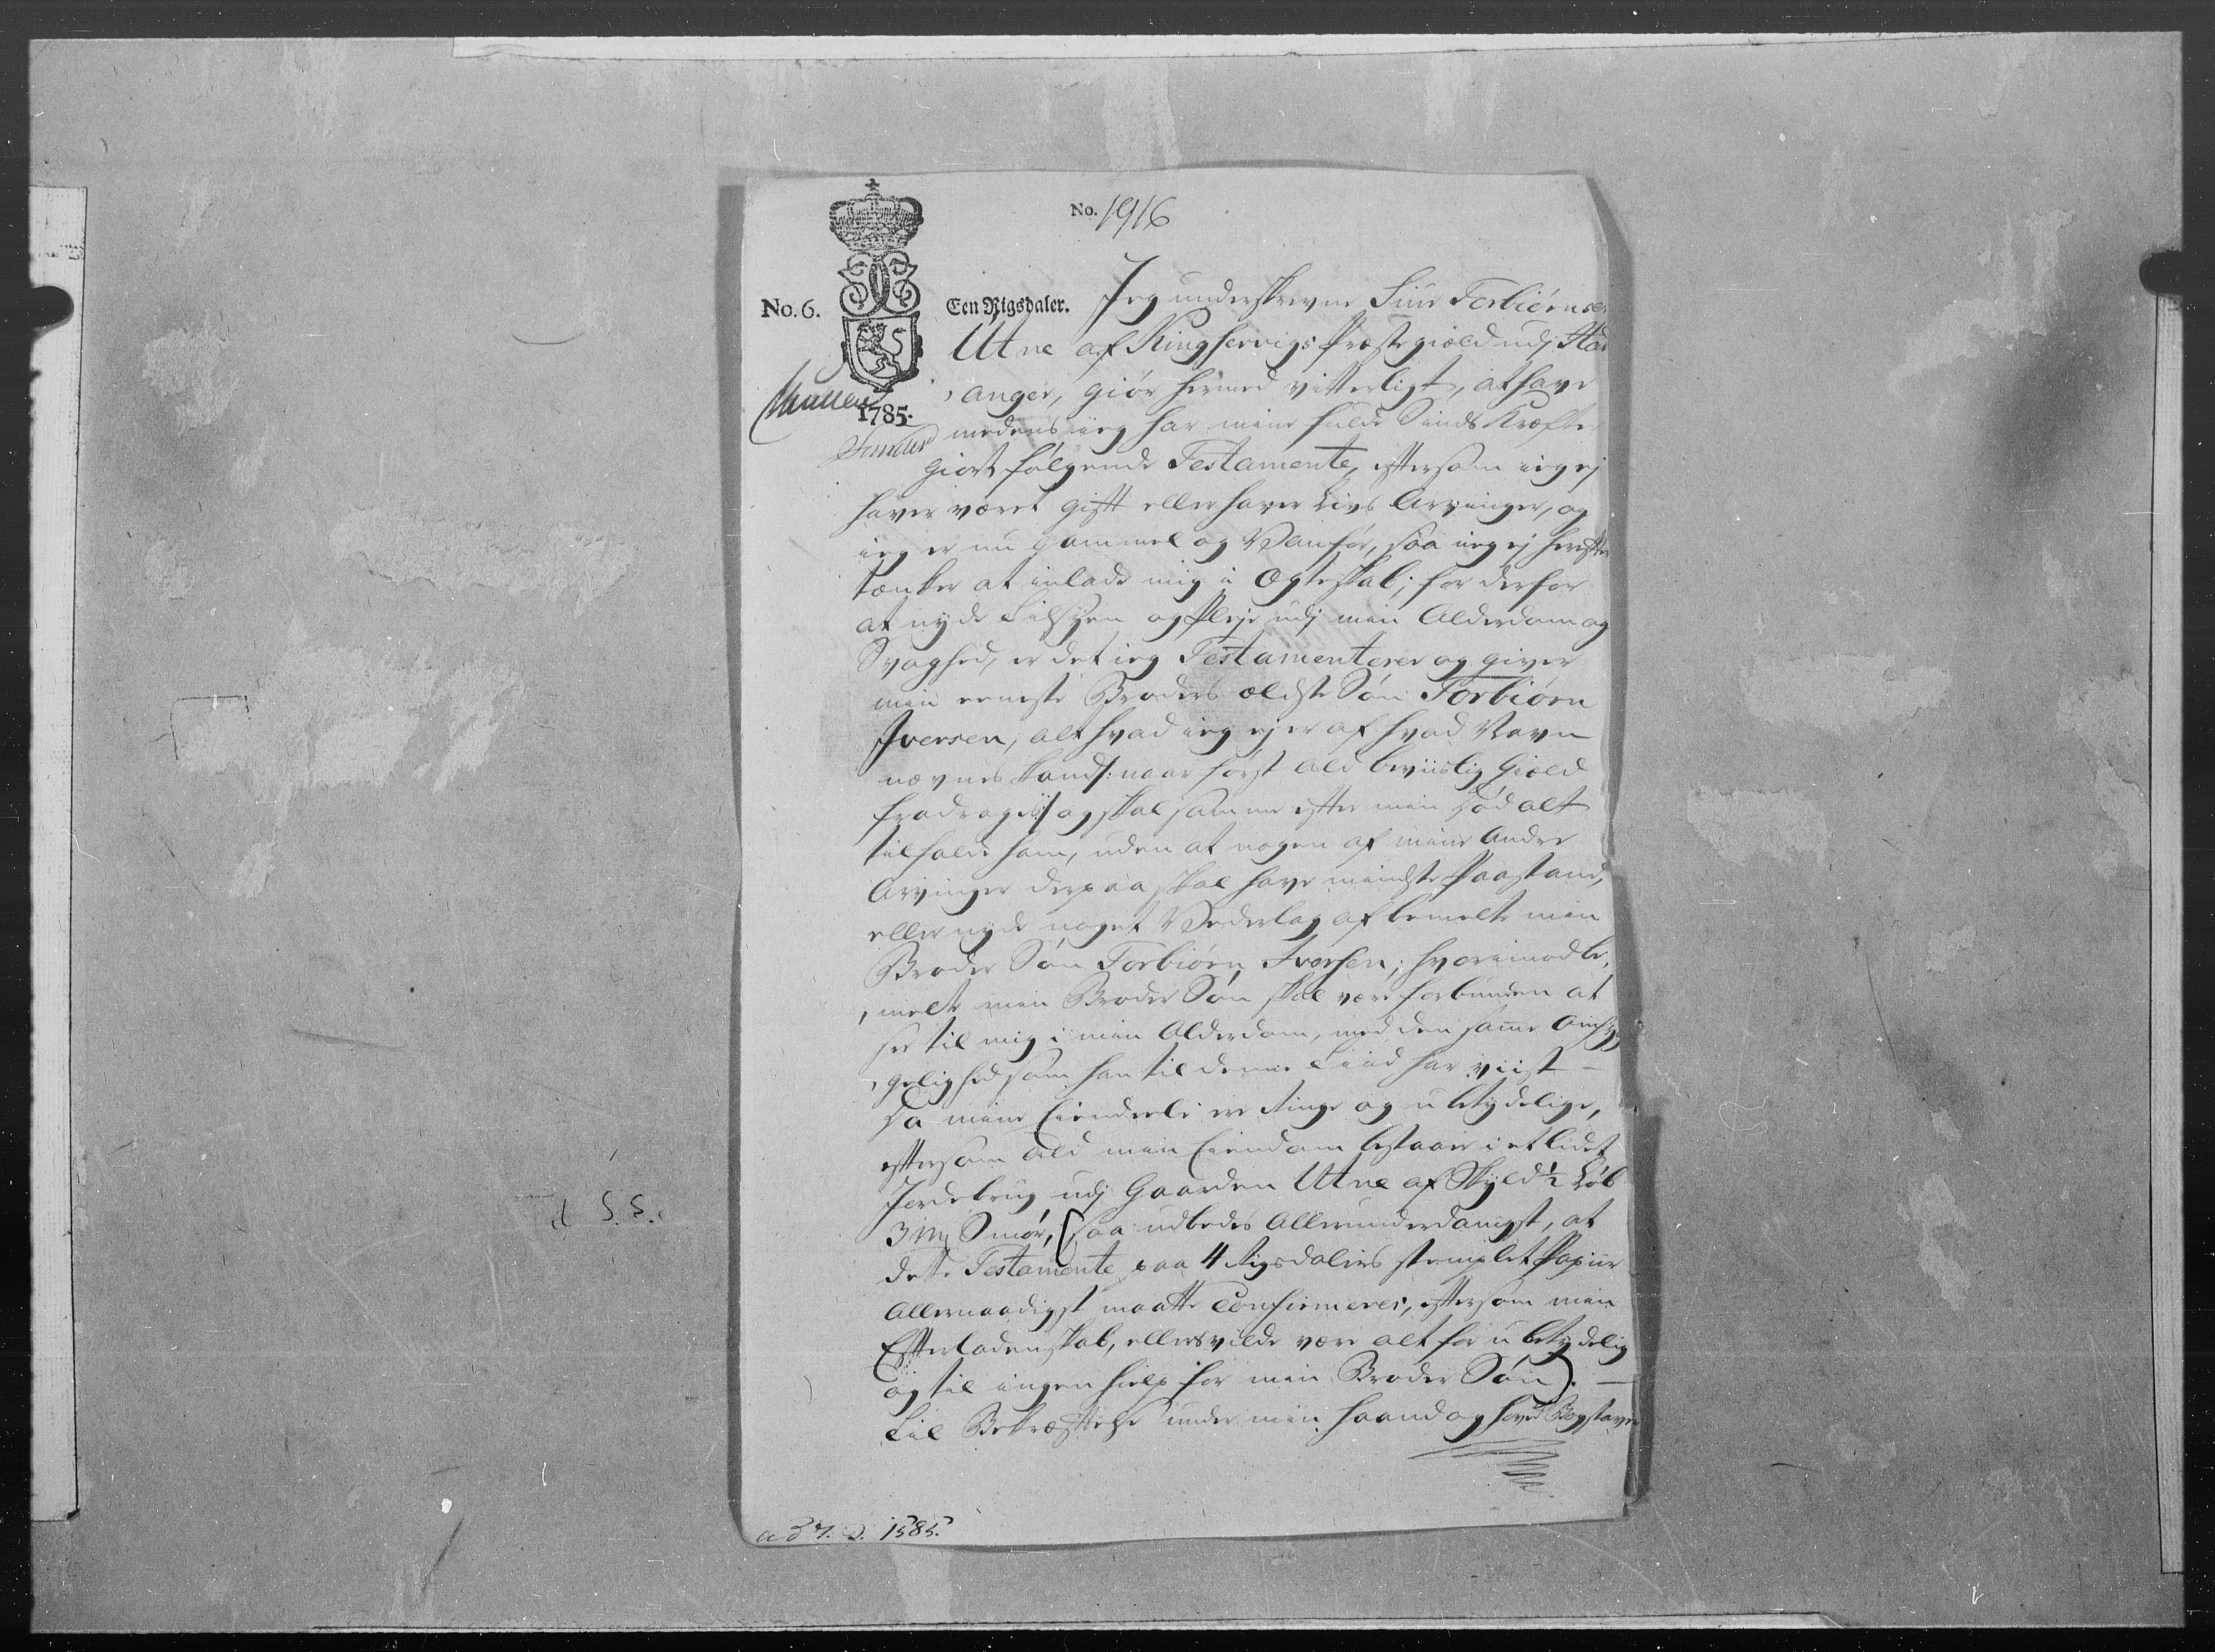 No. 1916
No. 6.
Een Rigsdaler.
1785.
Jeg underskrevne Siur Torbiörnsen
Utne af Kingservigs Præstegiæld udj Har
anger, giör hermed vitterligt, at have
medens ieg har mine fulde Sinds Kræfter
giort følgende Testamente, eftersom ieg ej
haver været gift eller haver Livs Arvinger, og
ieg er nu gammel og Vanför, saa ieg ej herefter
tænker at inlade mig i Ægteskab; for derfor
at nyde Tilsyen og Pleje udj min Alderdom og
Svaghed, er det ieg Testamenterer og giver
min eeneste Broders ældste Søn Torbiörn
Iversen, alt hvad ieg ejer af hvad Navn
nævnes kand /: naar først ald beviislig Giæld
fradrages :/ og skal samme efter min Død alt
tilfalde ham, uden at nogen af mine Andre
Arvinger derpaa skal have mindste Paastand,
eller nyde noget Vederlag af bemelte min
Broder Søn Torbiörn Iversen; hvorimod be,
,melte min Broder Søn skal være forbunden at
see til mig i min Alderdom, med den samme Omhyg
,gelighed som han til denne Tiid har viist —
Da mine Eiendeele ere ringe og ubetydelige,
eftersom ald min Eiendom bestaaer i et lidet
Jordebrug udj Gaarden Utne af Skyld ½ Løb
3 M Smör, (saa udbedes Allerunderdanigst, at
dette Testamente paa 4 Rigsdalers stemplet Papiir
Allernaadigst maatte confirmeres, eftersom min
Efterladenskab, ellers vilde være alt for ubetydelig
og til ingen hielp for min Broder Søn). —
Til Bekræftelse under min Haand og hoved Bogstaver
Til S. S.